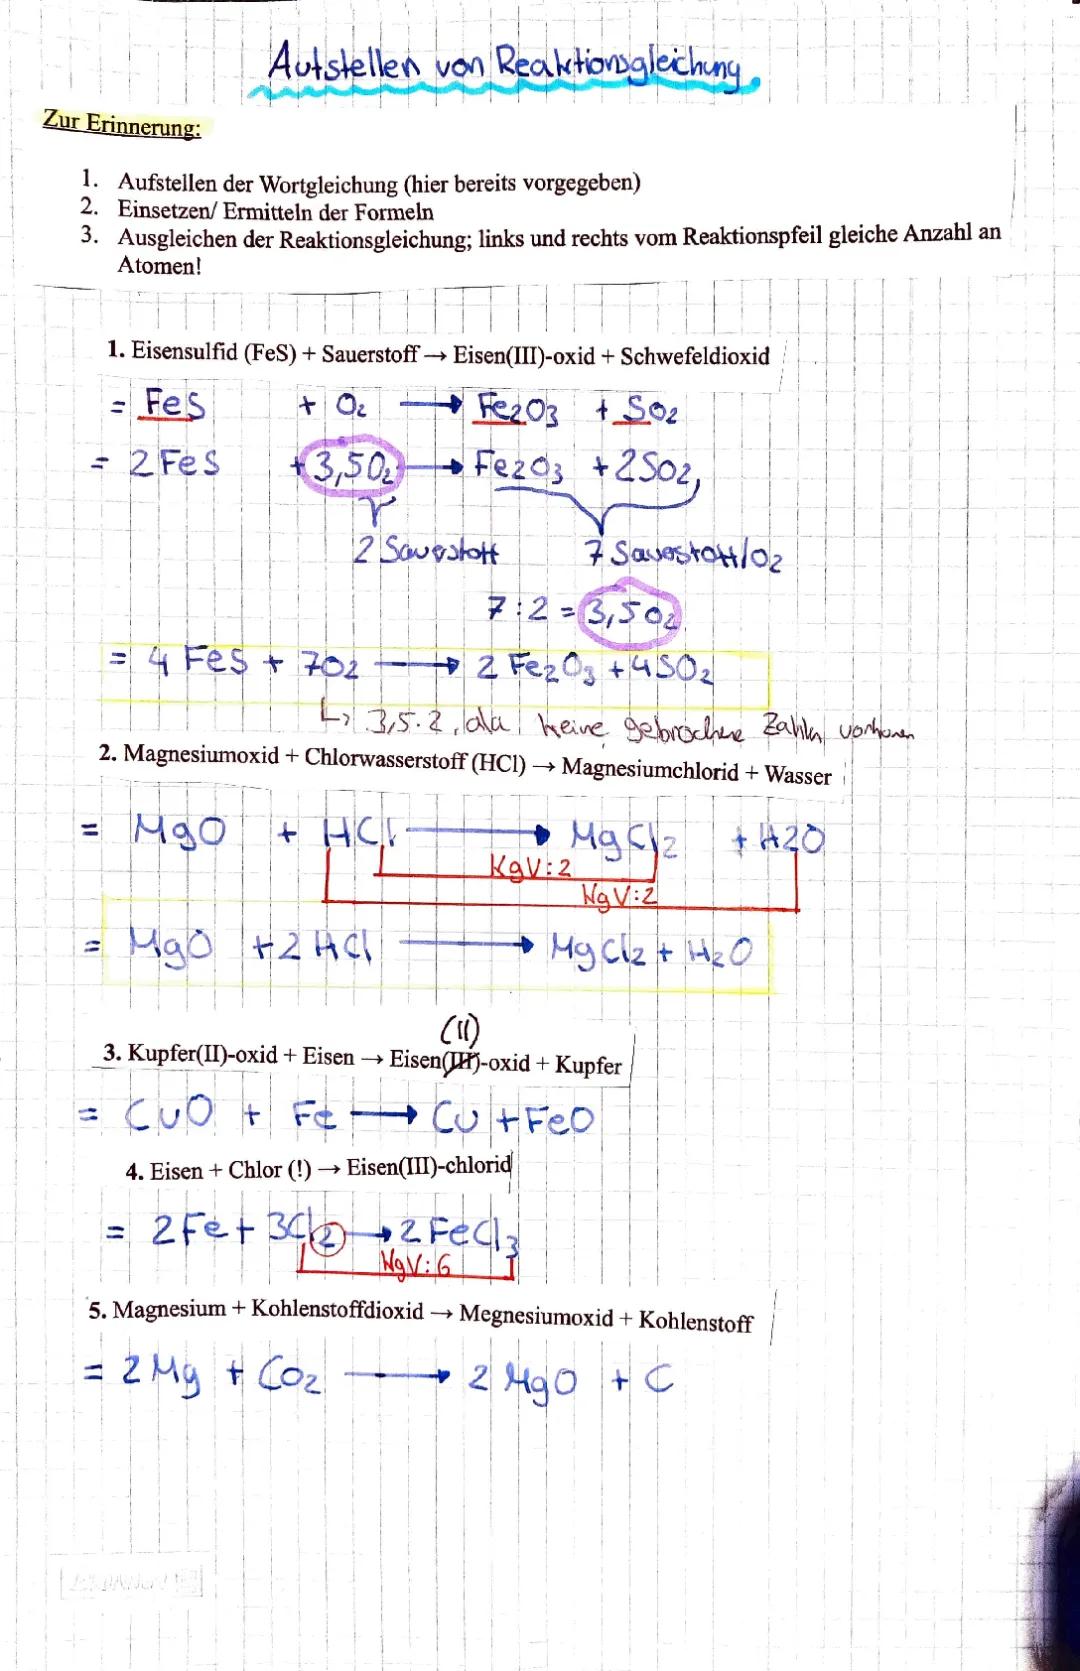 Aufstellen von Reaktionsgleichung
Zur Erinnerung:
1. Aufstellen der Wortgleichung (hier bereits vorgegeben)
2. Einsetzen/ Ermitteln der Formeln
3. Ausgleichen der Reaktionsgleichung; links und rechts vom Reaktionspfeil gleiche Anzahl an
Atomen!
1. Eisensulfid (FeS) + Sauerstoff → Eisen(III)-oxid + Schwefeldioxid
= FeS + O₂ → Fe₂O₃ + SO₂
= 2 FeS + 3,5O₂ → Fe₂O₃ + 2SO₂
2 Sauerstoff 7 Sauestoff/O₂
7:2 = 3,5O₂
= 4 FeS + 7O₂ → 2 Fe₂O₃ + 4SO₂
↳ 3,5·2, da keine gebrochene Zahlen
2. Magnesiumoxid + Chlorwasserstoff (HCl) → Magnesiumchlorid + Wasser
= MgO + HCl → MgCl₂ + H2O
KgV:2
KgV:2
= MgO + 2 HCl → MgCl₂ + H₂O
(II)
3. Kupfer(II)-oxid + Eisen → Eisen(III)-oxid + Kupfer
= CuO + Fe → Cu + FeO
4. Eisen + Chlor (!) → Eisen(III)-chlorid
= 2Fe + 3Cl₂ → 2 FeCl₃
KgV:6
5. Magnesium + Kohlenstoffdioxid → Megnesiumoxid + Kohlenstoff
= 2 Mg + CO₂ → 2 MgO + C